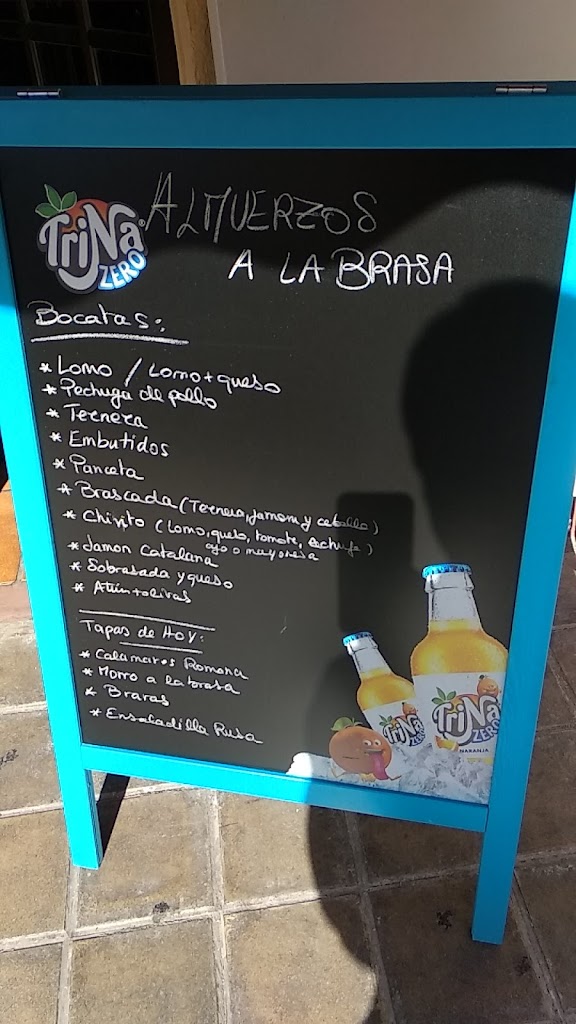 TriNa ZERO
ALMUERZOS
A LA BRASA
Bocatas:
* Lomo / Lomo + queso
* Pechuga de pollo
* Ternera
* Embutidos
* Panceta
* Brascada (Ternera, jamon y cebolla)
* Chivito (Lomo, queso, tomate, lechuga)
ajo o mayonesa
* Jamon Catalana
* Sobrasada y queso
* Atún + olivas
Tapas de HOY:
* Calamares Romana
* Morro a la brasa
* Bravas
* Ensaladilla Rusa
TriNa ZERO
TriNa ZERO
NARANJA